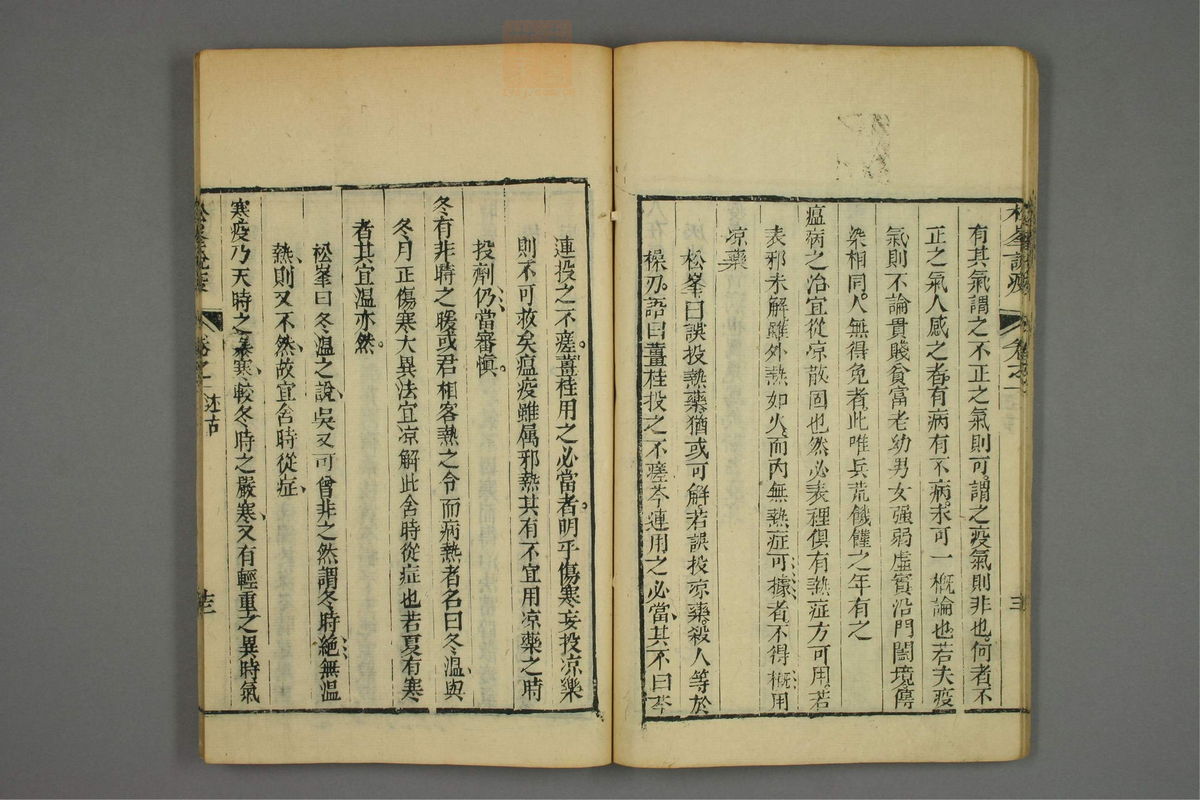 松峯說疫
卷之一
三
有其氣謂之不正之氣則可謂之疫氣則非也何者不
正之氣人感之者有病有不病未可一概論也若夫疫
氣則不論貴賤貧富老幼男女强弱虛實沿門闔境傳
染相同人無得免者此唯兵荒饑饉之年有之
瘟病之治宜從凉散固也然必表裡俱有熱症方可用若
表邪未解雖外熱如火而內無熱症可據者不得槪用
凉藥
松峯曰誤投熱藥猶或可解若誤投凉藥殺人等於
操刃語曰薑桂投之不瘥芩連用之必當其不曰芩
連投之不瘥薑桂用之必當者明乎傷寒妄投凉樂
則不可救矣瘟疫雖属邪熱其有不宜用凉藥之時
投劑仍當審愼
冬有非時之暖或君相客熱之令而病熱者名曰冬溫與
冬月正傷寒大異法宜凉解此舍時從症也若夏有寒
者其宜温亦然
松峯曰冬温之說吳又可曾非之然謂冬時絕無温
熱則又不然故宜舍時從症
寒疫乃天時之暴寒較冬時之嚴寒又有輕重之異時氣
松峯說疫
卷之一
述古